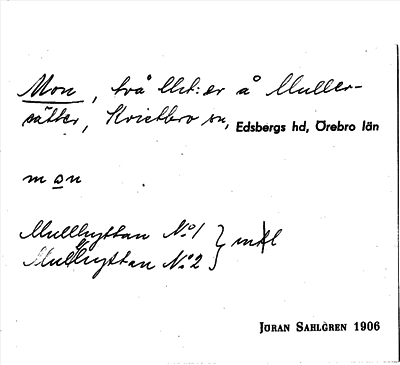 Mon, två lht:er å Muller-
sätter, Kvistbro sn, Edsbergs hd, Örebro län
mon
Mullhyttan No 1
Mullhyttan No 2
JÖRAN SAHLGREN 1906